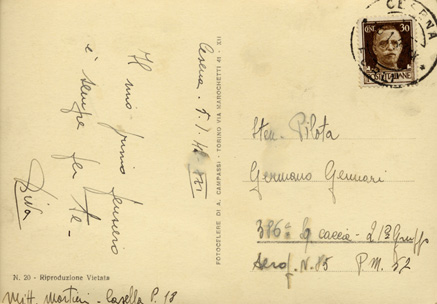 Cesena. 5.1.42 XXI
Il mio primo pensiero
è sempre per te -
Dina
FOTOCELERE DI A. CAMPASSI - TORINO VIA MAROCHETTI 41 - XII
CESENA
CENT. 30
POSTE ITALIANE
Sten. Pilota
Germano Gennari
386ª Sq caccia - 21º Gruppo
Aerop. N. 85 P. M. 52
N. 20 - Riproduzione Vietata
Mitt. Casella P. 18